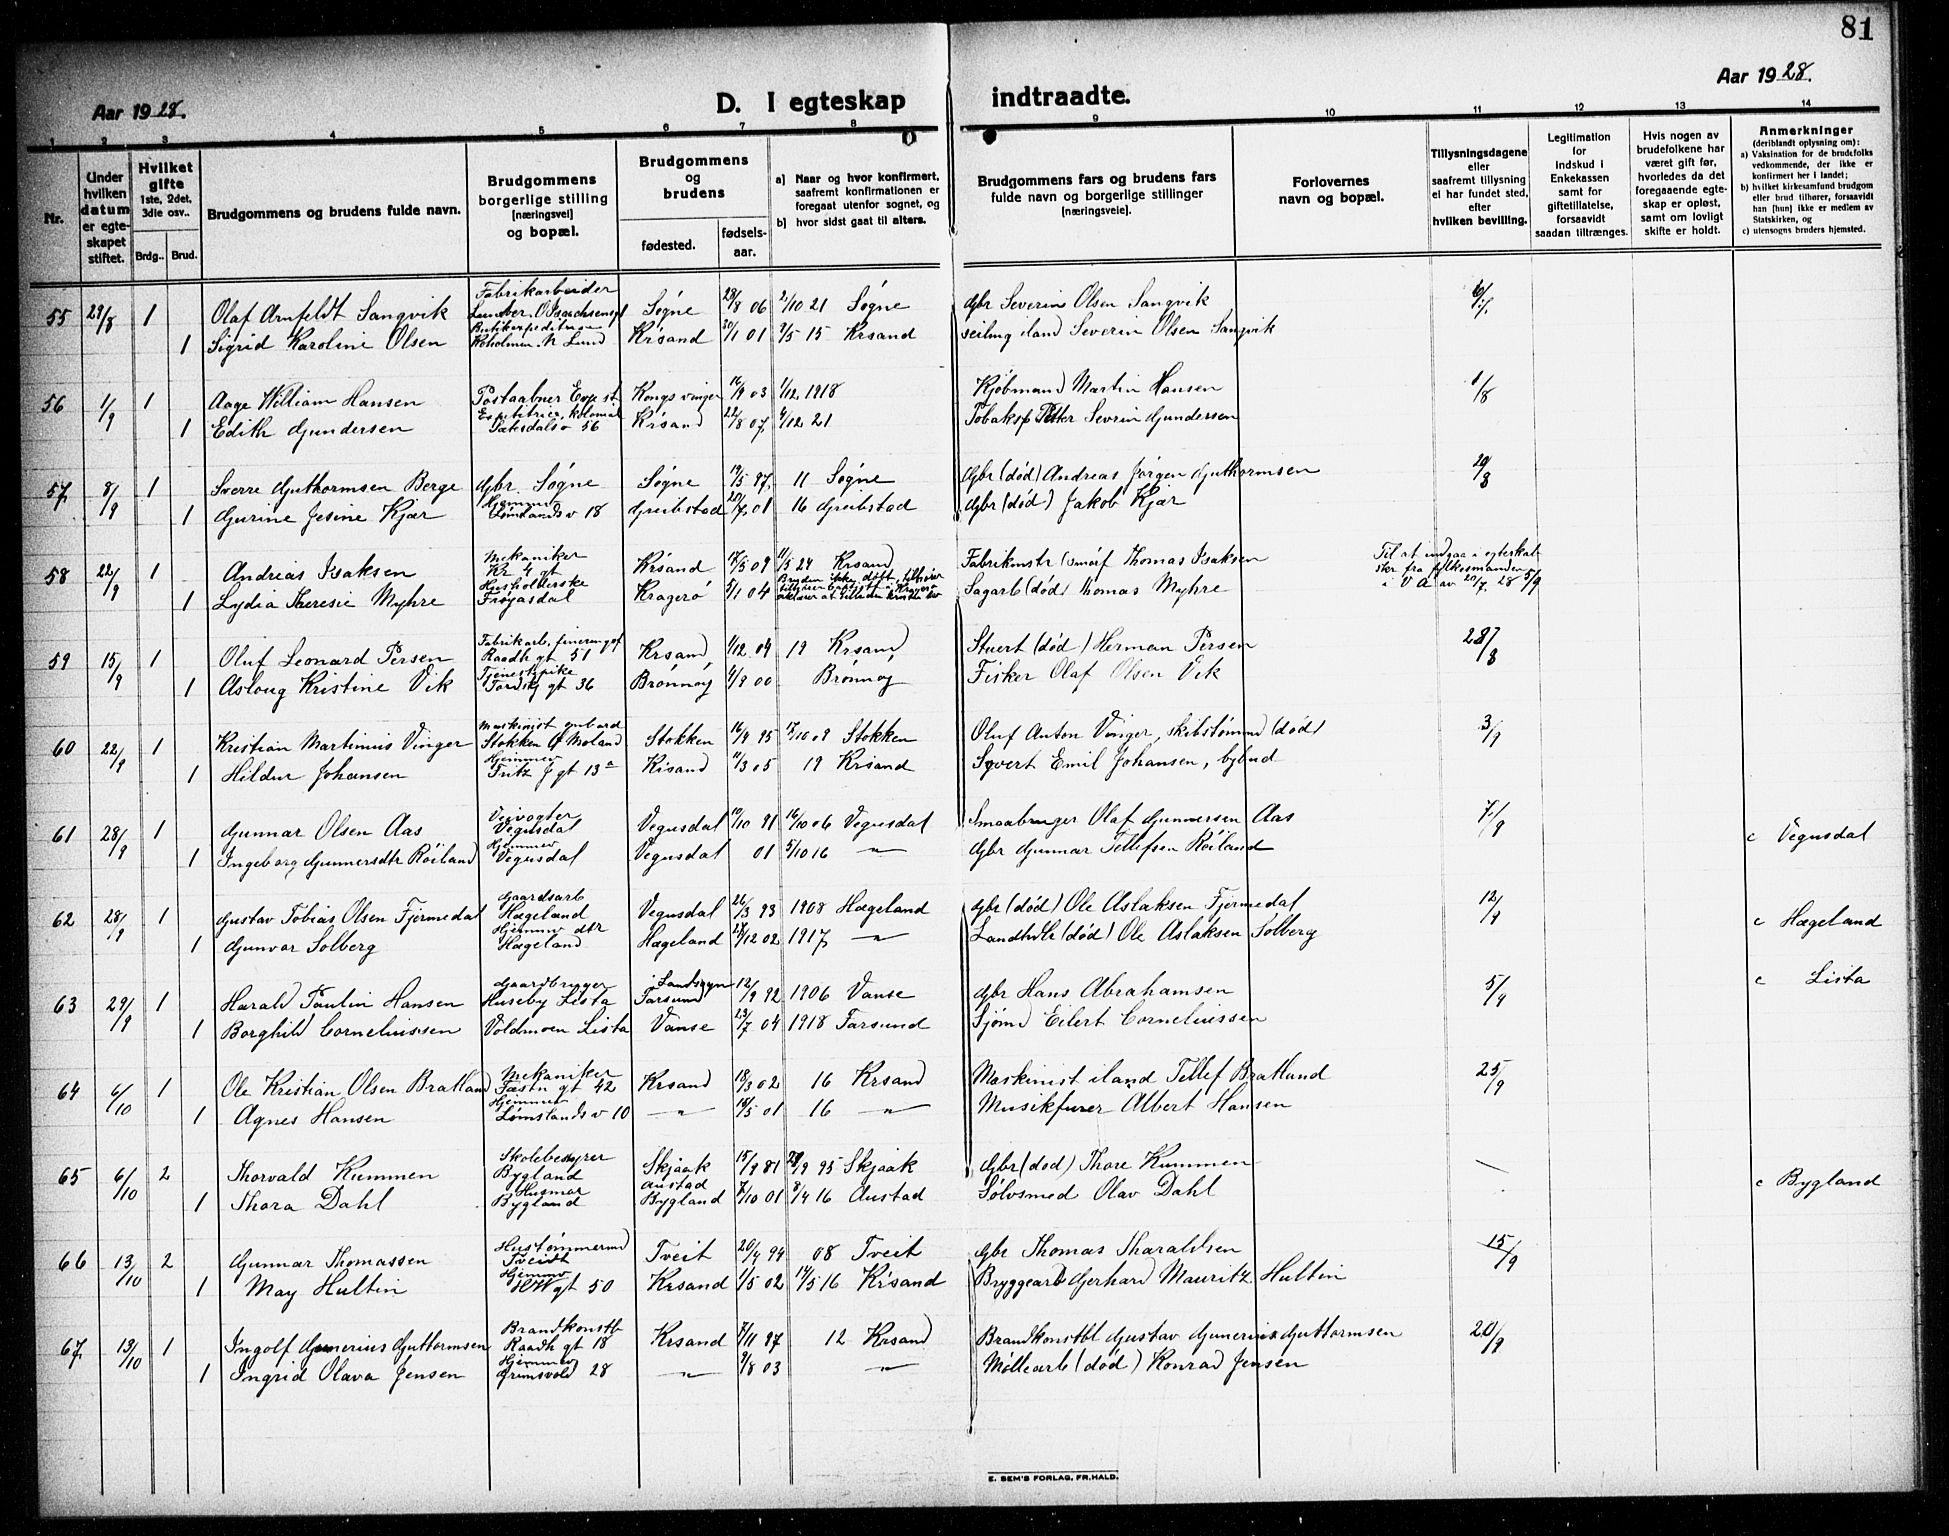 81
Aar 1928.
D. I egteskap
indtraadte.
Aar 1928.
1 2 3 4 5 6 7 8 9 10 11 12 13 14
Nr.
Under hvilken datum er egteskapet stiftet.
Hvilket gifte 1ste, 2det, 3die osv..
Brdg.. Brud.
Brudgommens og brudens fulde navn.
Brudgommens borgerlige stilling (næringsvei) og bopæl.
Brudgommens og brudens
fødested.
fødsels-aar.
a) Naar og hvor konfirmert, saafremt konfirmationen er foregaat utenfor sognet, og
b) hvor sidst gaat til alters.
Brudgommens fars og brudens fars fulde navn og borgerlige stillinger (næringsveie).
Forlovernes navn og bopæl.
Tillysningsdagene eller saafremt tillysning ei har fundet sted, efter hvilken bevilling.
Legitimation for Indskud i Enkekassen samt for giftetillatelse, forsaavidt saadan tiltrænges.
Hvis nogen av brudefolkene har været gift før, hvorledes da det foregaaende egteskap er opløst, samt om lovligt skifte er holdt.
Anmerkninger (deriblandt oplysning om):
a) Vaksination for de brudefolks vedkommende, der ikke er konfirmert her i landet;
b) hvilket kirkesamfund brudgom eller brud tilhører, forsaavidt han [hun] ikke er medlem av Statskirken, og
c) utensogns bruders hjemsted.
55 29/8 1 Olaf Arnfeldt Sangvik Fabrikarbeider Søgne 28/8 06 2/10 21 Søgne Gbr Severin Olsen Sangvik
1 Sigrid Karoline Olsen Krsand 20/1 01 2/5 15 Krsand Severin Olsen Sangvik
56 1/9 1 Aage William Hansen Postaabner Kongsvinger 16/9 03 1/12 1918 Kjøbmand Martin Hansen 1/8
1 Edith Gundersen Sætesdalsv 56 Krsand 22/8 07 4/12 21 Petter Severin Gundersen
57 8/9 1 Sverre Guthormsen Berge Gbr. Søgne Søgne 19/5 97 11 Søgne Gbr (død) Andreas Jørgen Guthormsen 20/8
1 Gurine Jesine Kjær Hjemmev Lømslandsv 18 Greibstad 20/7 01 16 Greibstad Gbr (død) Jakob Kjær
58 22/9 1 Andreas Isaksen Mekaniker Kr 4 gt Krsand 17/5 09 11/5 24 Krsand Thomas Isaksen Til at indgaa i egteskab fra fylkesmanden i V A av 20/7 28 5/9
1 Lydia Theresie Myhre Husholderske Frøyasdal Kragerø 5/1 04 Sagarb (død) Thomas Myhre
59 15/9 1 Oluf Leonard Persen Fabrikarb. Raadh gt 51 Krsand 1/12 04 19 Krsand Stuert (død) Herman Persen 28/8
1 Asloug Kristine Vik Tjenestepike Tordskj gt 36 Brønnøy 4/9 00 Brønnøy Fisker Olaf Olsen Vik
60 22/9 1 Kristian Martinius Vinger Maskinist ombord Stokken Ø Moland Stokken 16/9 95 17/10 09 Stokken Oluf Anton Vinger, skibstømmm (død) 3/9
1 Hildur Johansen Hjemmev Fritz J gt 13a Krsand 11/3 05 19 Krsand Syvert Emil Johansen, bybud
61 28/9 1 Gunnar Olsen Aas Veivogter Vegusdal Vegusdal 10/10 91 16/10 06 Vegusdal Smaabruger Olaf Gunnersen Aas 7/9 c Vegusdal
1 Ingeborg Gunnersdtr Røiland Hjemmev Vegusdal Vegusdal 01 5/10 16 —"— Gbr Gunnar Tellefsen Røiland
62 28/9 1 Gustav Tobias Olsen Fjermedal Gaardsarb Hægeland Vegusdal 26/3 93 1908 Hægeland Gbr (død) Ole Aslaksen Fjermedal 12/9 c Hægeland
1 Gunvor Solberg Hjemmev dtr Hægeland Hægeland 27/12 02 1917 —"— Landhdlr (død) Ole Aslaksen Solberg
63 29/9 1 Harald Paulin Hansen Gaardbryger Huseby Lista Landsogn Farsund 12/9 92 1906 Vanse Gbr Hans Abrahamsen 5/9 c Lista
1 Borghild Corneliussen Voldmoen Lista Vanse 23/7 04 1918 Farsund Sjømd Eilert Corneliussen
64 6/10 1 Ole Kristian Olsen Bratland Mekaniker Fæstn gt 42 Krsand 18/3 02 16 Krsand Maskinist iland Tellef Bratland 25/9
1 Agnes Hansen Hjemmev Lømslandsv 10 —"— 18/5 01 16 —"— Musikfører Albert Hansen
65 6/10 2 Thorvald Kummen Skolebestyrer Bygland Skjaak 15/9 81 29/9 95 Skjaak Gbr (død) Thore Kummen — c Bygland
1 Thora Dahl Husmor Bygland Austad Bygland 7/10 01 8/4 16 Austad Sølvsmed Olav Dahl
66 13/10 2 Gunnar Thomassen Hustømmermd Tveidt Tveit 20/4 94 08 Tveit Gbr Thomas Tharaldsen 15/9
1 May Hultin Hjemmev HW gt 50 Krsand 1/5 02 14/5 16 Krsand Bryggearb Gerhard Mauritz Hultin
67 13/10 1 Ingolf Gunerius Guttormsen Brandkonstb Raadh gt 18 Krsand 7/11 97 12 Krsand Brandkonstbl Gustav Gunerius Guttormsen 20/9
1 Ingrid Olava Jensen Hjemmev Grimsvold 28 —"— 9/8 03 —"— Møllearb (død) Konrad Jensen
E. SEM'S FORLAG, FR.HALD.